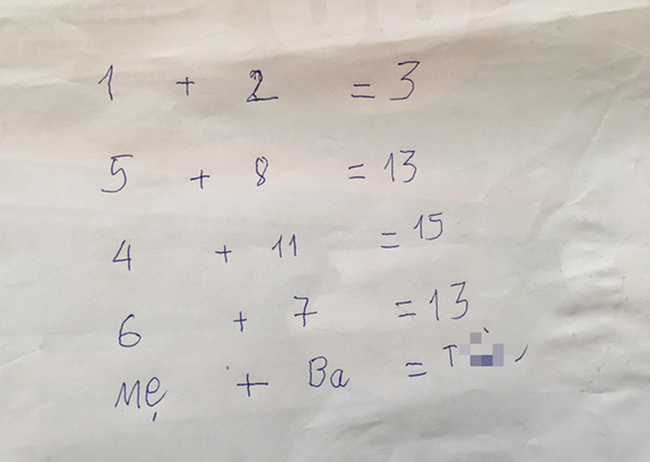 1 + 2 = 3
5 + 8 = 13
4 + 11 = 15
6 + 7 = 13
Mẹ + Ba =